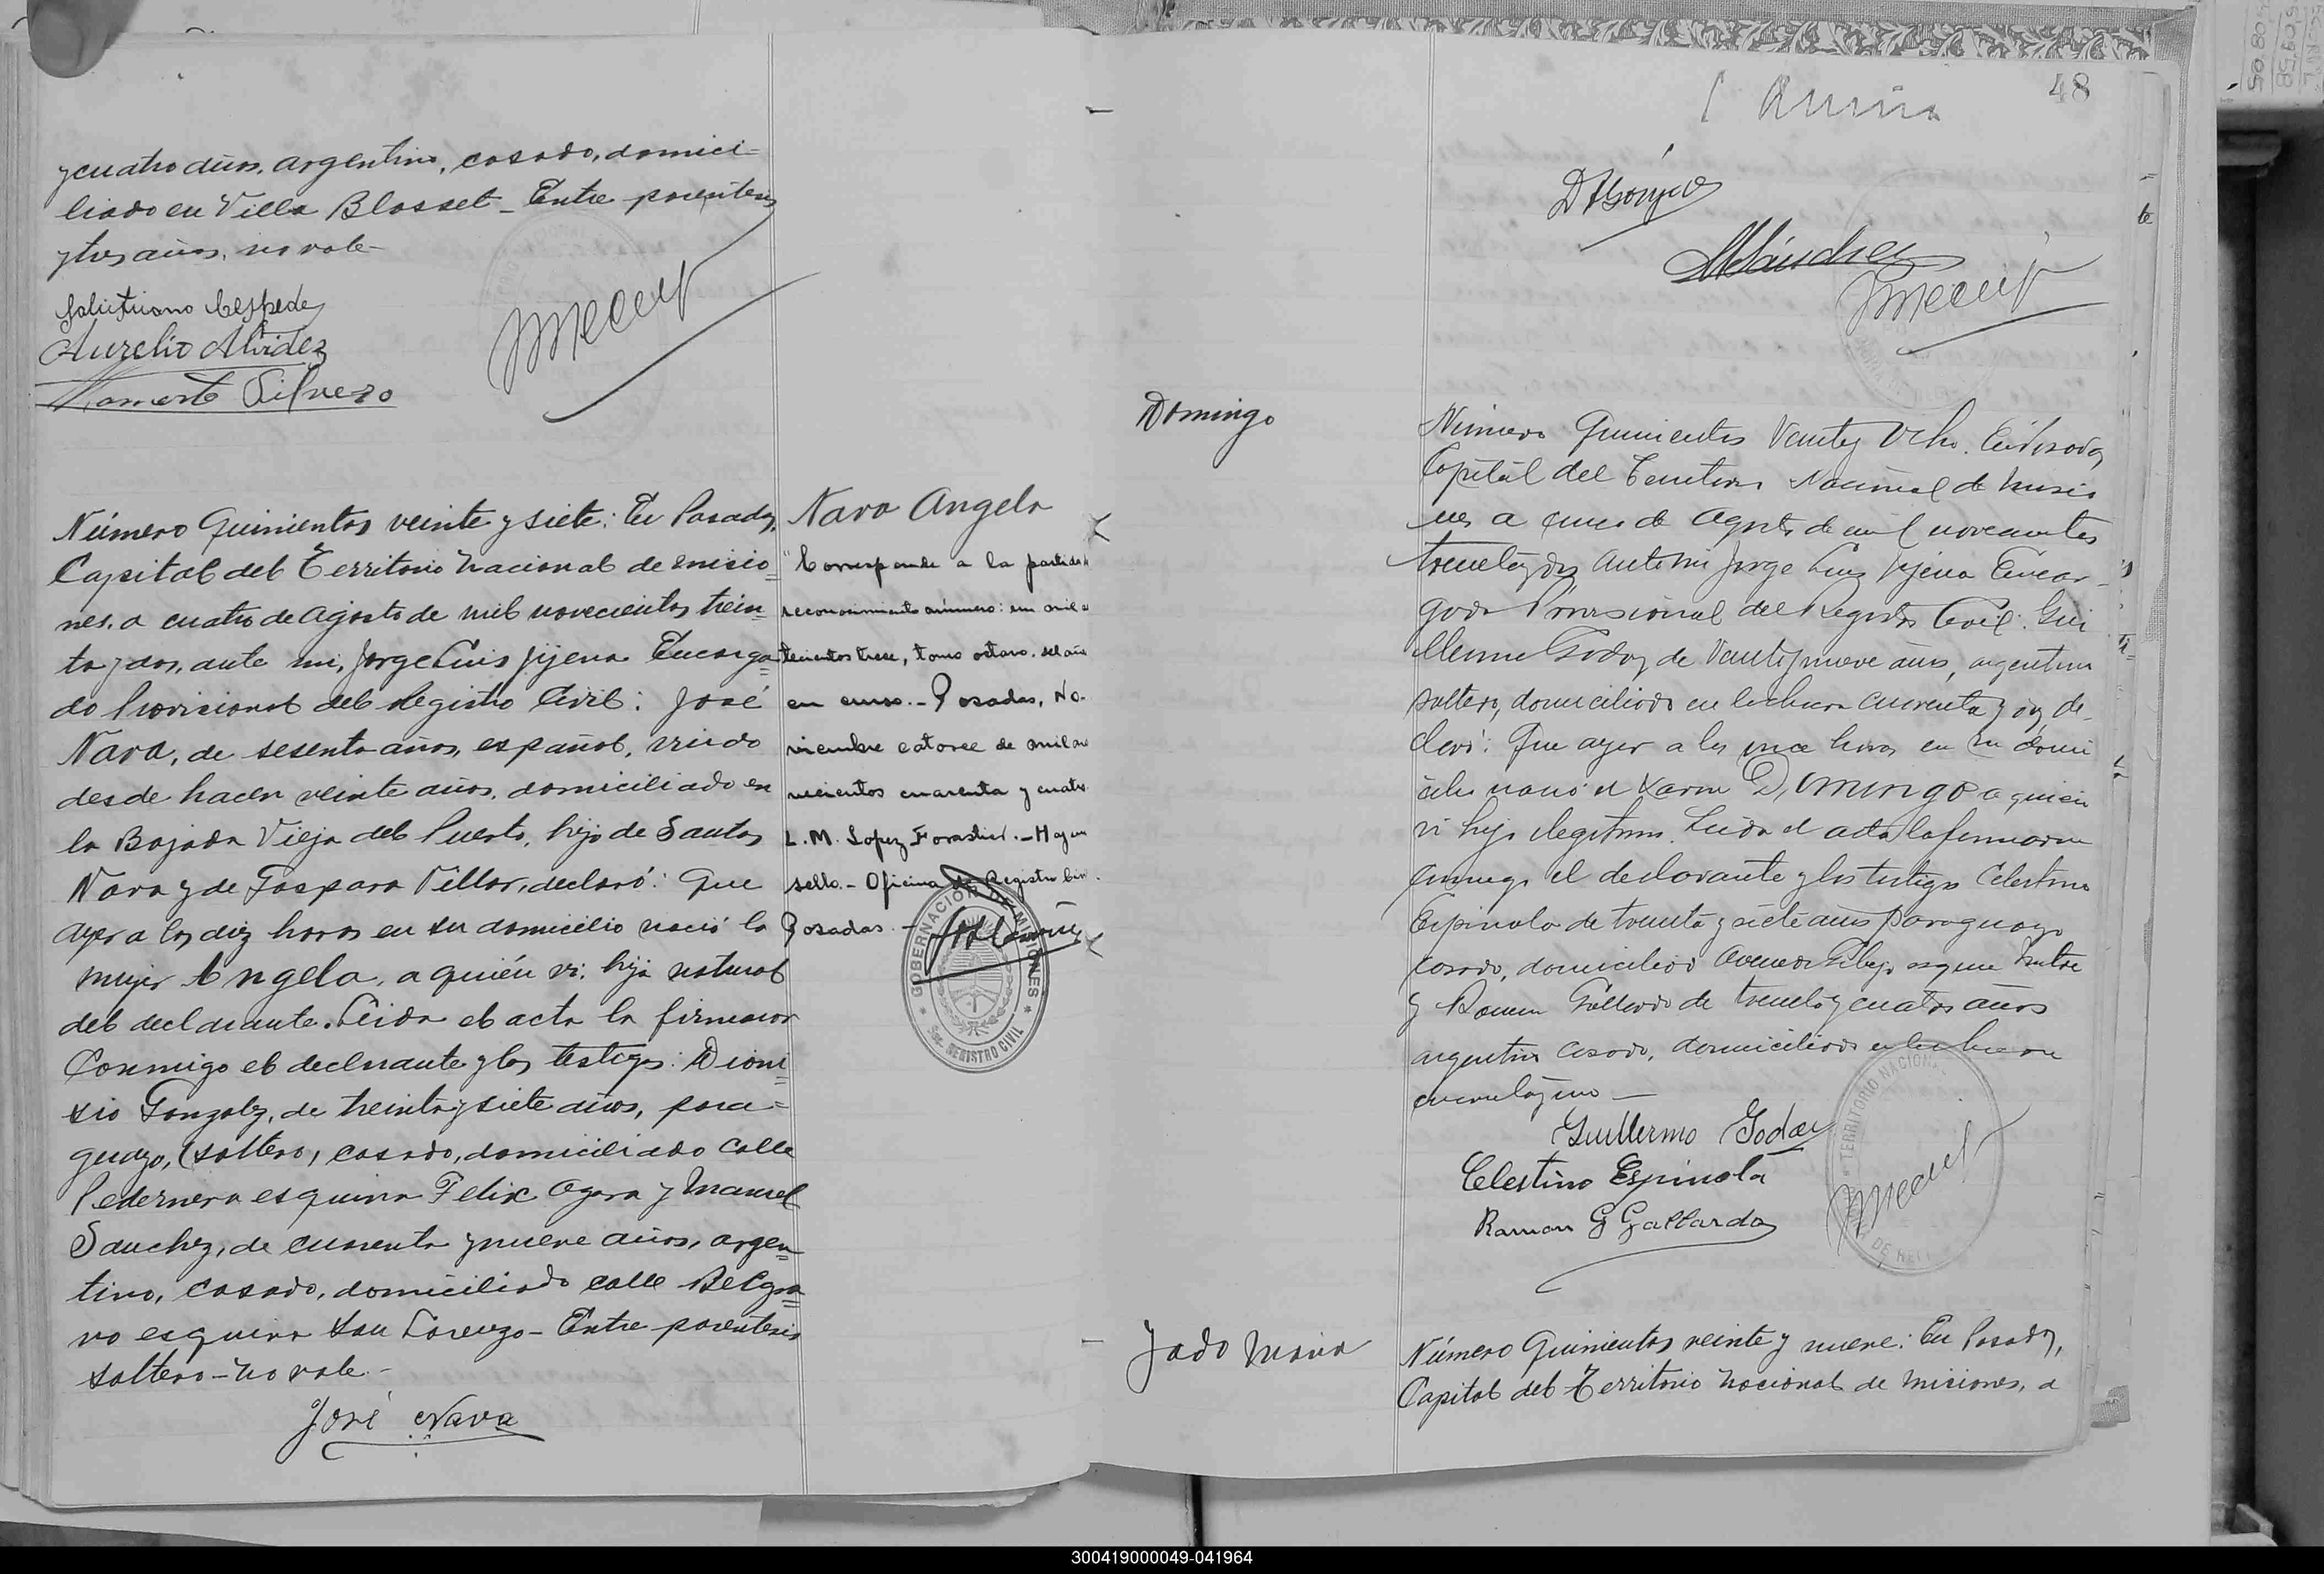 y cuatro años, argentino, casado, domici=
liado en Villa Blosset - Entre parentesis
y tres años, no vale -
Salustiano Cespedes
Aurelio Alvidez
Silvero
Número Quinientos veinte y siete: En Posadas,
Capital del Territorio Nacional de Misio=
nes, a cuatro de Agosto de mil novecientos trein=
ta y dos, ante mi, Jorge Luis Jijena Encarga=
do Provisional del Registro Civil: José
Nava, de sesenta años, español, viudo
desde hacen veinte años, domiciliado en
la Bajada Vieja del Puerto, hijo de Santos
Nava y de Gaspara Villar, declaró: Que
ayer a las diez horas en su domicilio nació la
mujer Angela, a quién vi, hija natural
del declarante. Leida el acta la firmaron
Conmigo el declarante y los testigos: Dioni=
sio Gonzalez, de treinta y siete años, para=
guayo, (soltero) casado, domiciliado calle
Pedernera esquina Felix Azara y Manuel
Sanchez, de cuarenta y nueve años, argen=
tino, casado, domiciliado calle Belgra=
no esquina San Lorenzo - Entre parentesis
soltero - no vale -
José Nava
Nava Angela
"Corresponde a la partida
reconocimiento número: un mil
tecientos trece, tomo octavo, del año
en curso. - Posadas, No-
viembre catorce de mil no
vecientos cuarenta y cuatro
L. M. Lopez Forastier. - Hay un
sello. - Oficina de Registro Civ.
Posadas. -
GOBERNACION DE MISIONES
REGISTRO CIVIL
48
Sánchez
Domingo
Número Quinientos Veinte y Ocho. En Posadas,
Capital del Territorio Nacional de Misio
nes a cinco de Agosto de mil novecientos
treinta y dos ante mi Jorge Luis Jijena Encar-
gado Provisional del Registro Civil: Gui
llermo Godoy de Veinte y nueve años, argentino
soltero, domiciliado en la chacra cuarenta y de-
claró: Que ayer a las once horas en su domi
cilio nació el Varon Domingo a quien
vi hijo ilegitimo. Leida el acta la firmaron
conmigo el declarante y los testigos Celestino
Espinola de treinta y siete años paraguayo
casado, domiciliado Avenida esquina Mitre
y Ramon Gallardo de treinta y cuatro años
argentino casado, domiciliado en la chacra
cuarenta y uno -
Guillermo Godoy
Celestino Espinola
Ramon G Gallardo
TERRITORIO NACIONAL
Jado Maria
Número Quinientos veinte y nueve: En Posadas,
Capital del Territorio Nacional de Misiones, a
300419000049-041964